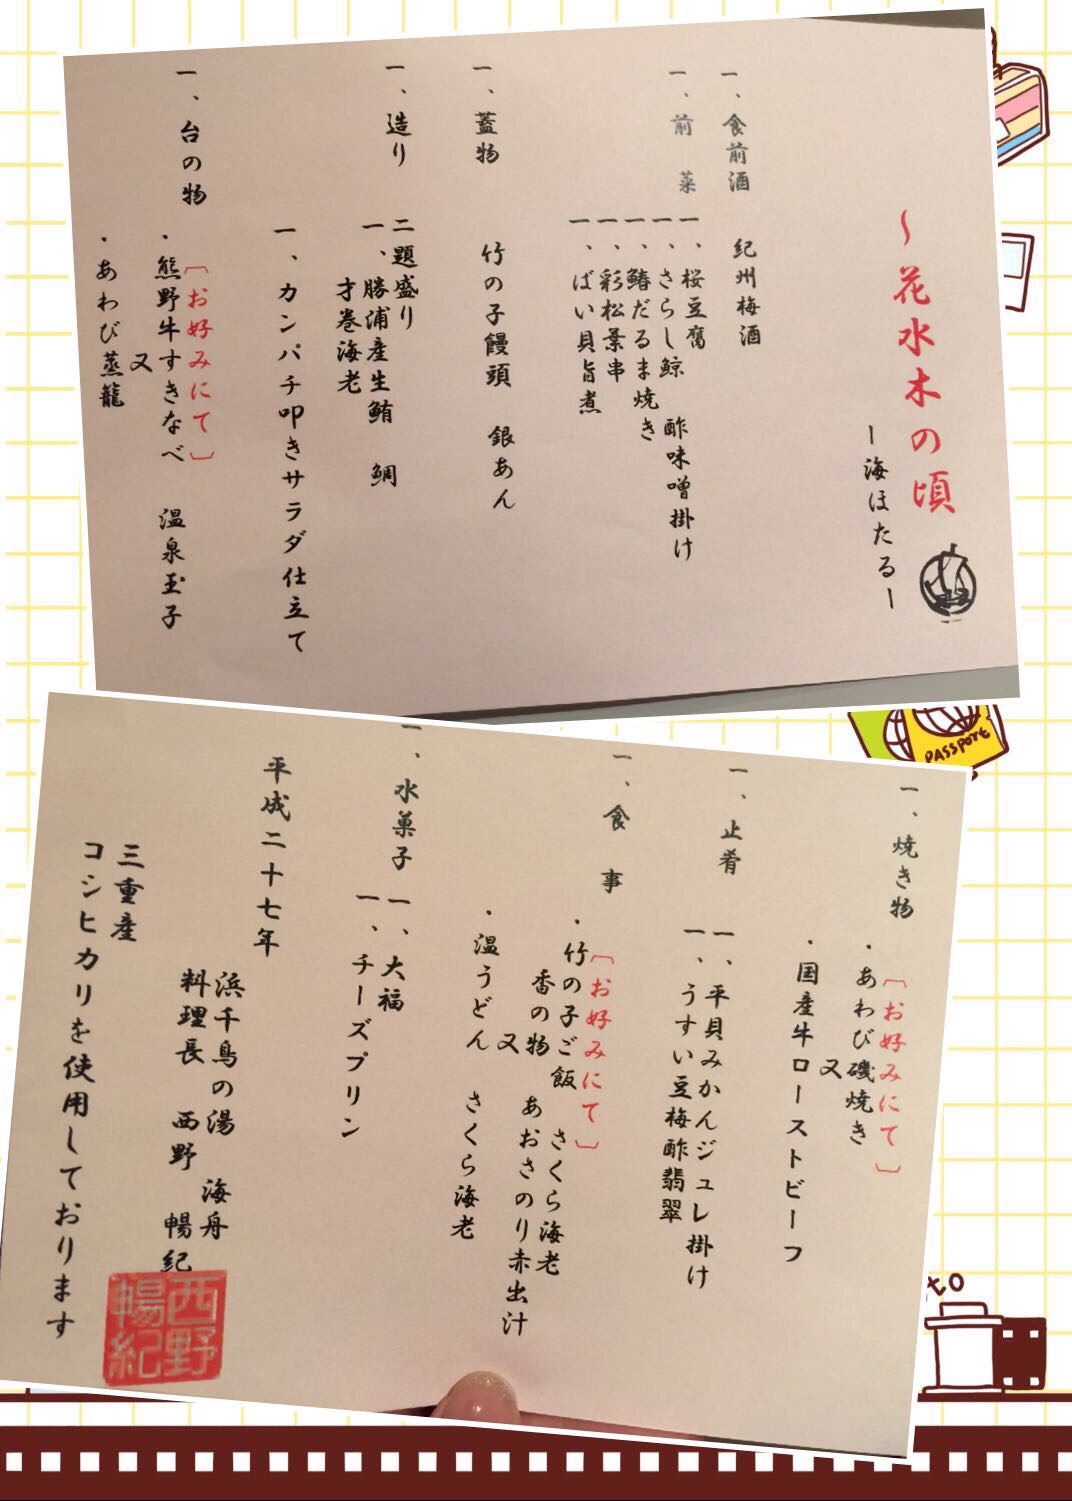 ～花水木の頃
ー海ほたるー
一、食前酒　紀州梅酒
一、前　菜　一、桜豆腐
一、さらし鯨　酢味噌掛け
一、鰆だるま焼き
一、彩松葉串
一、ばい貝旨煮
一、蓋物　竹の子饅頭　銀あん
一、造り　二題盛り
一、勝浦産生鮪　鯛
才巻海老
一、カンパチ叩きサラダ仕立て
一、台の物　〔お好みにて〕
・熊野牛すきなべ　温泉玉子
又
・あわび蒸籠
PASSPORT
一、焼き物　〔お好みにて〕
・あわび磯焼き
又
・国産牛ローストビーフ
一、止肴　一、平貝みかんジュレ掛け
一、うすい豆梅酢翡翠
一、食　事　〔お好みにて〕
・竹の子ご飯　さくら海老
香の物　あおさのり赤出汁
又
・温うどん　さくら海老
一、水菓子　一、大福
一、チーズプリン
平成二十七年
浜千鳥の湯　海舟
料理長　西野　暢紀
西野
暢紀
三重産
コシヒカリを使用しております